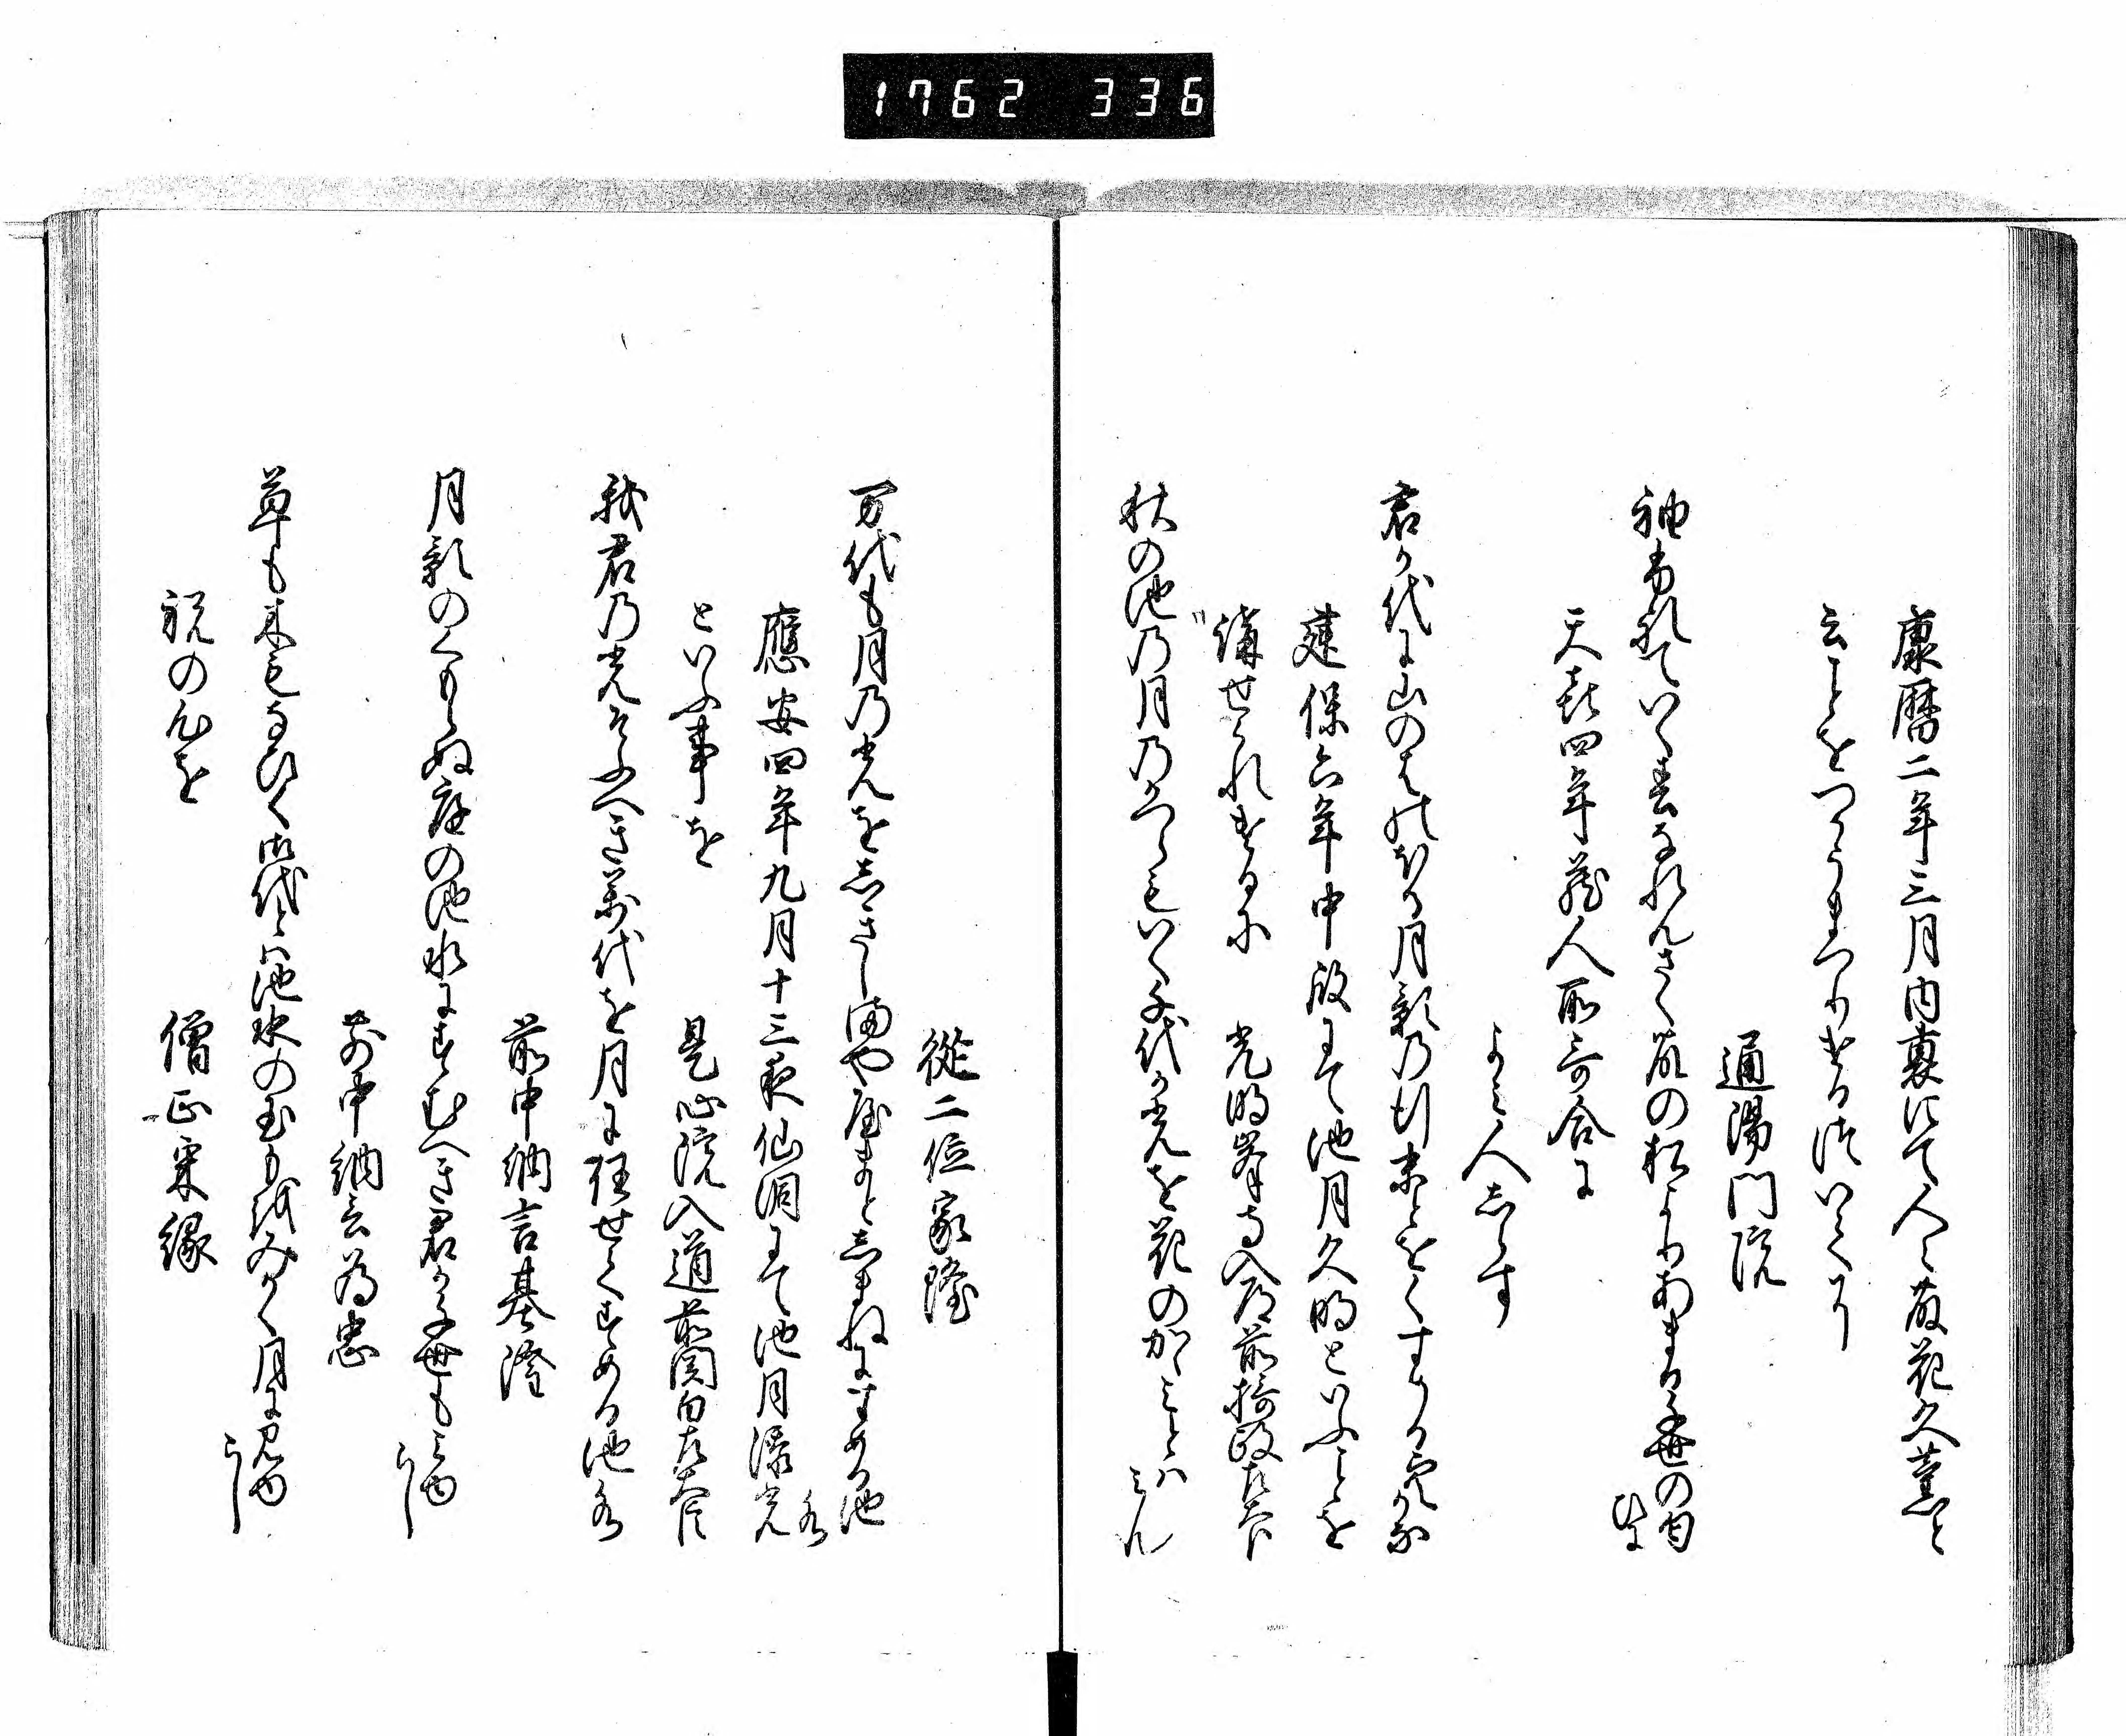 1762 336
康暦二年三月内裏にて人々藤花久薫と
云ことをつかうまつりける次いてに
通陽門院
袖ふれていく春なれんさく藤の松よりあまる千世の匂
ひに
天喜四年蔵人所哥合に
よみ人しらす
君か代に山のはのほる月影の行末とをくすめる空かな
建保六年中殿にて池月久明といふことを
講せられけるに 光明峯寺入道前摂政左大臣
秋の池の月のかつらもいく千代か光を花のかゝみとは
みん
従二位家隆
万代も月の光をしきしまややまとしまねにすめる池
水
應安四年九月十三夜仙洞にて池月添光
といふ事を 是心院入道前関白左大臣
我君の光そふへき萬代を月に任せてすめる池水
前中納言基隆
月影のくもらぬ庭の池水にすむへき君か千世も見ゆ
らし
前中納言為忠
草も木もなひく御代とは池水の玉もをみかく月に見ゆ
らし
祝の心を 僧正杲縁